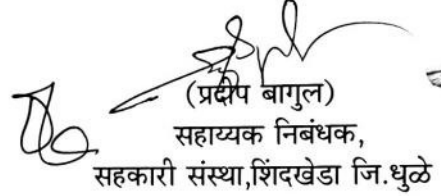 (प्रदीप बागुल)
सहाय्यक निबंधक,
सहकारी संस्था,शिंदखेडा जि.धुळे